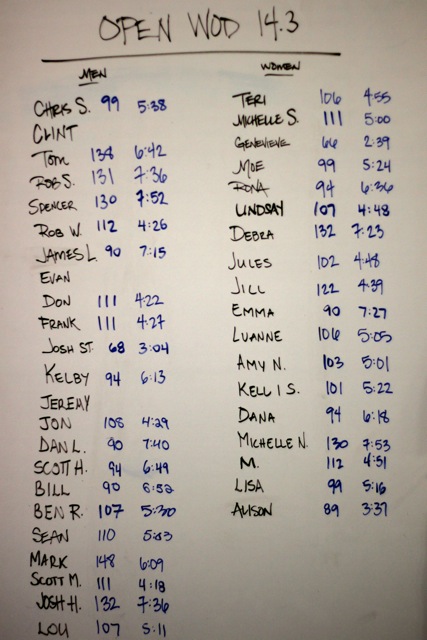 OPEN WOD 14.3
MEN
CHRIS S. 99 5:38
CLINT
TOM 138 6:42
ROB S. 131 7:36
SPENCER 130 7:52
ROB W. 112 4:26
JAMES L. 90 7:15
EVAN
DON 111 4:22
FRANK 111 4:27
JOSH ST. 68 3:04
KELBY 94 6:13
JEREMY
JON 108 4:29
DAN L. 90 7:40
SCOTT H. 94 6:49
BILL 90 6:52
BEN R. 107 5:30
SEAN 110 5:03
MARK 148 6:09
SCOTT M. 111 4:18
JOSH H. 132 7:36
LOU 107 5:11
WOMEN
TERI 106 4:55
MICHELLE S. 111 5:00
GENEVIEVE 66 2:39
MOE 99 5:24
RONA 94 6:36
LINDSAY 107 4:48
DEBRA 132 7:23
JULES 102 4:48
JILL 122 4:39
EMMA 90 7:27
LUANNE 106 5:05
AMY N. 103 5:01
KELLI S. 101 5:22
DANA 94 6:18
MICHELLE N. 130 7:53
M. 112 4:51
LISA 99 5:16
ALISON 89 3:37